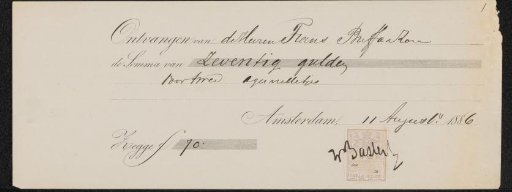 1
Ontvangen van de Heeren Frans Buffa & Zoon
de Somma van Zeventig gulden
voor twee aquarelletjes
Amsterdam, 11 Augustus 1886
Zegge f 70.-